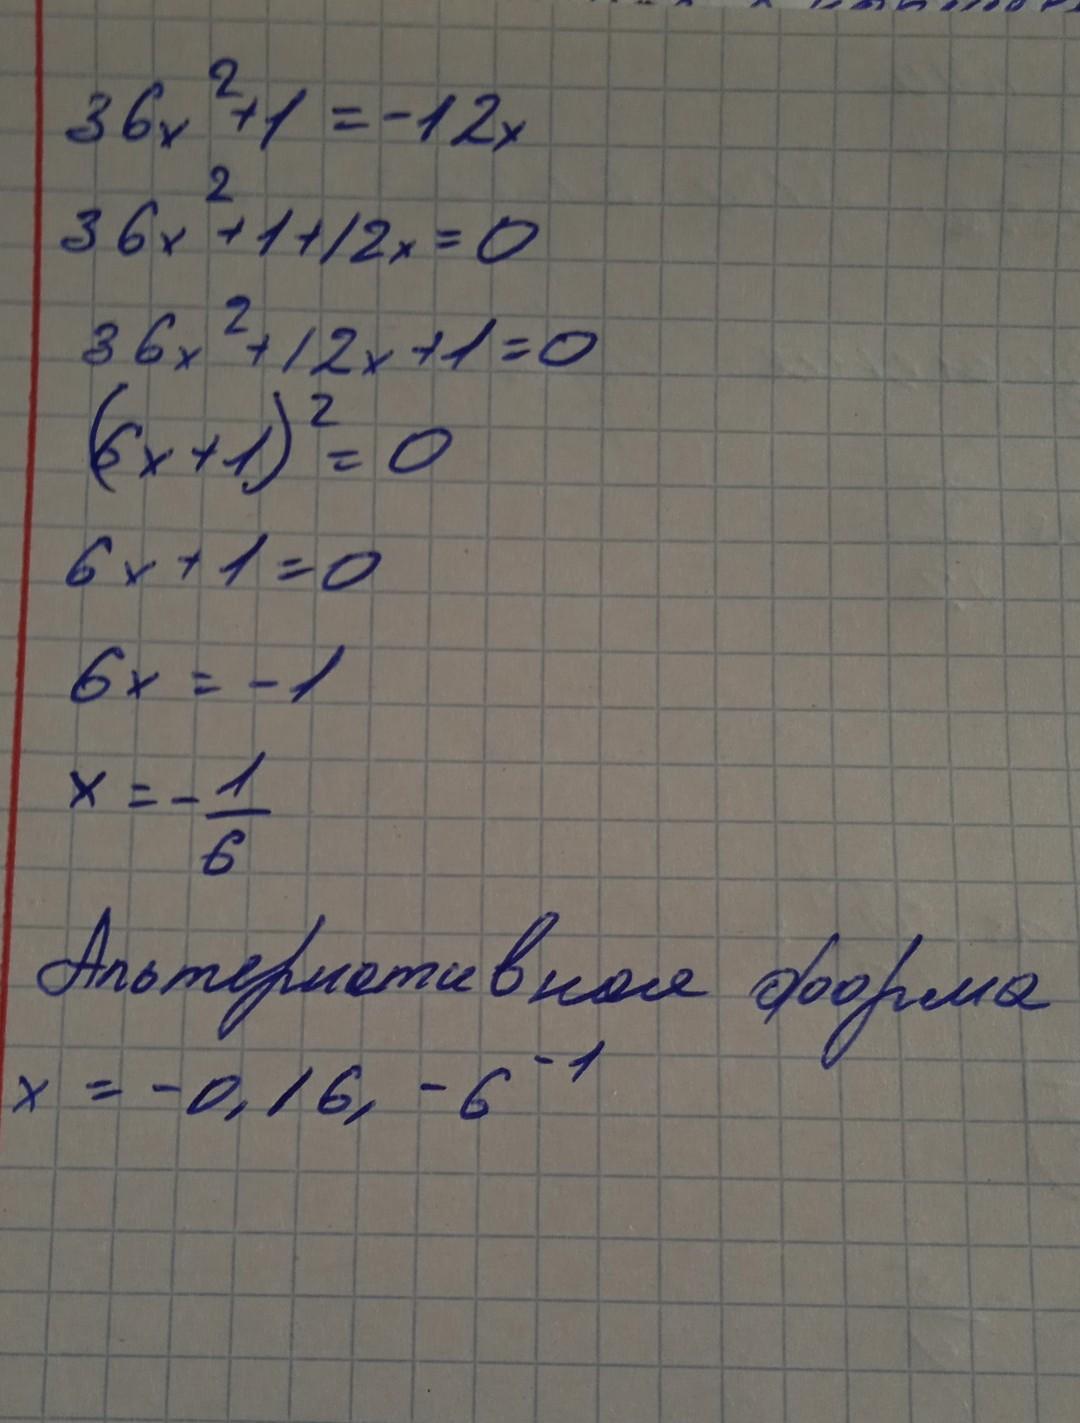 36x²+1=-12x
36x²+1+12x=0
36x²+12x+1=0
(6x+1)²=0
6x+1=0
6x=-1
x=-1/6
Альтернативная форма
x=-0,16, -6⁻¹